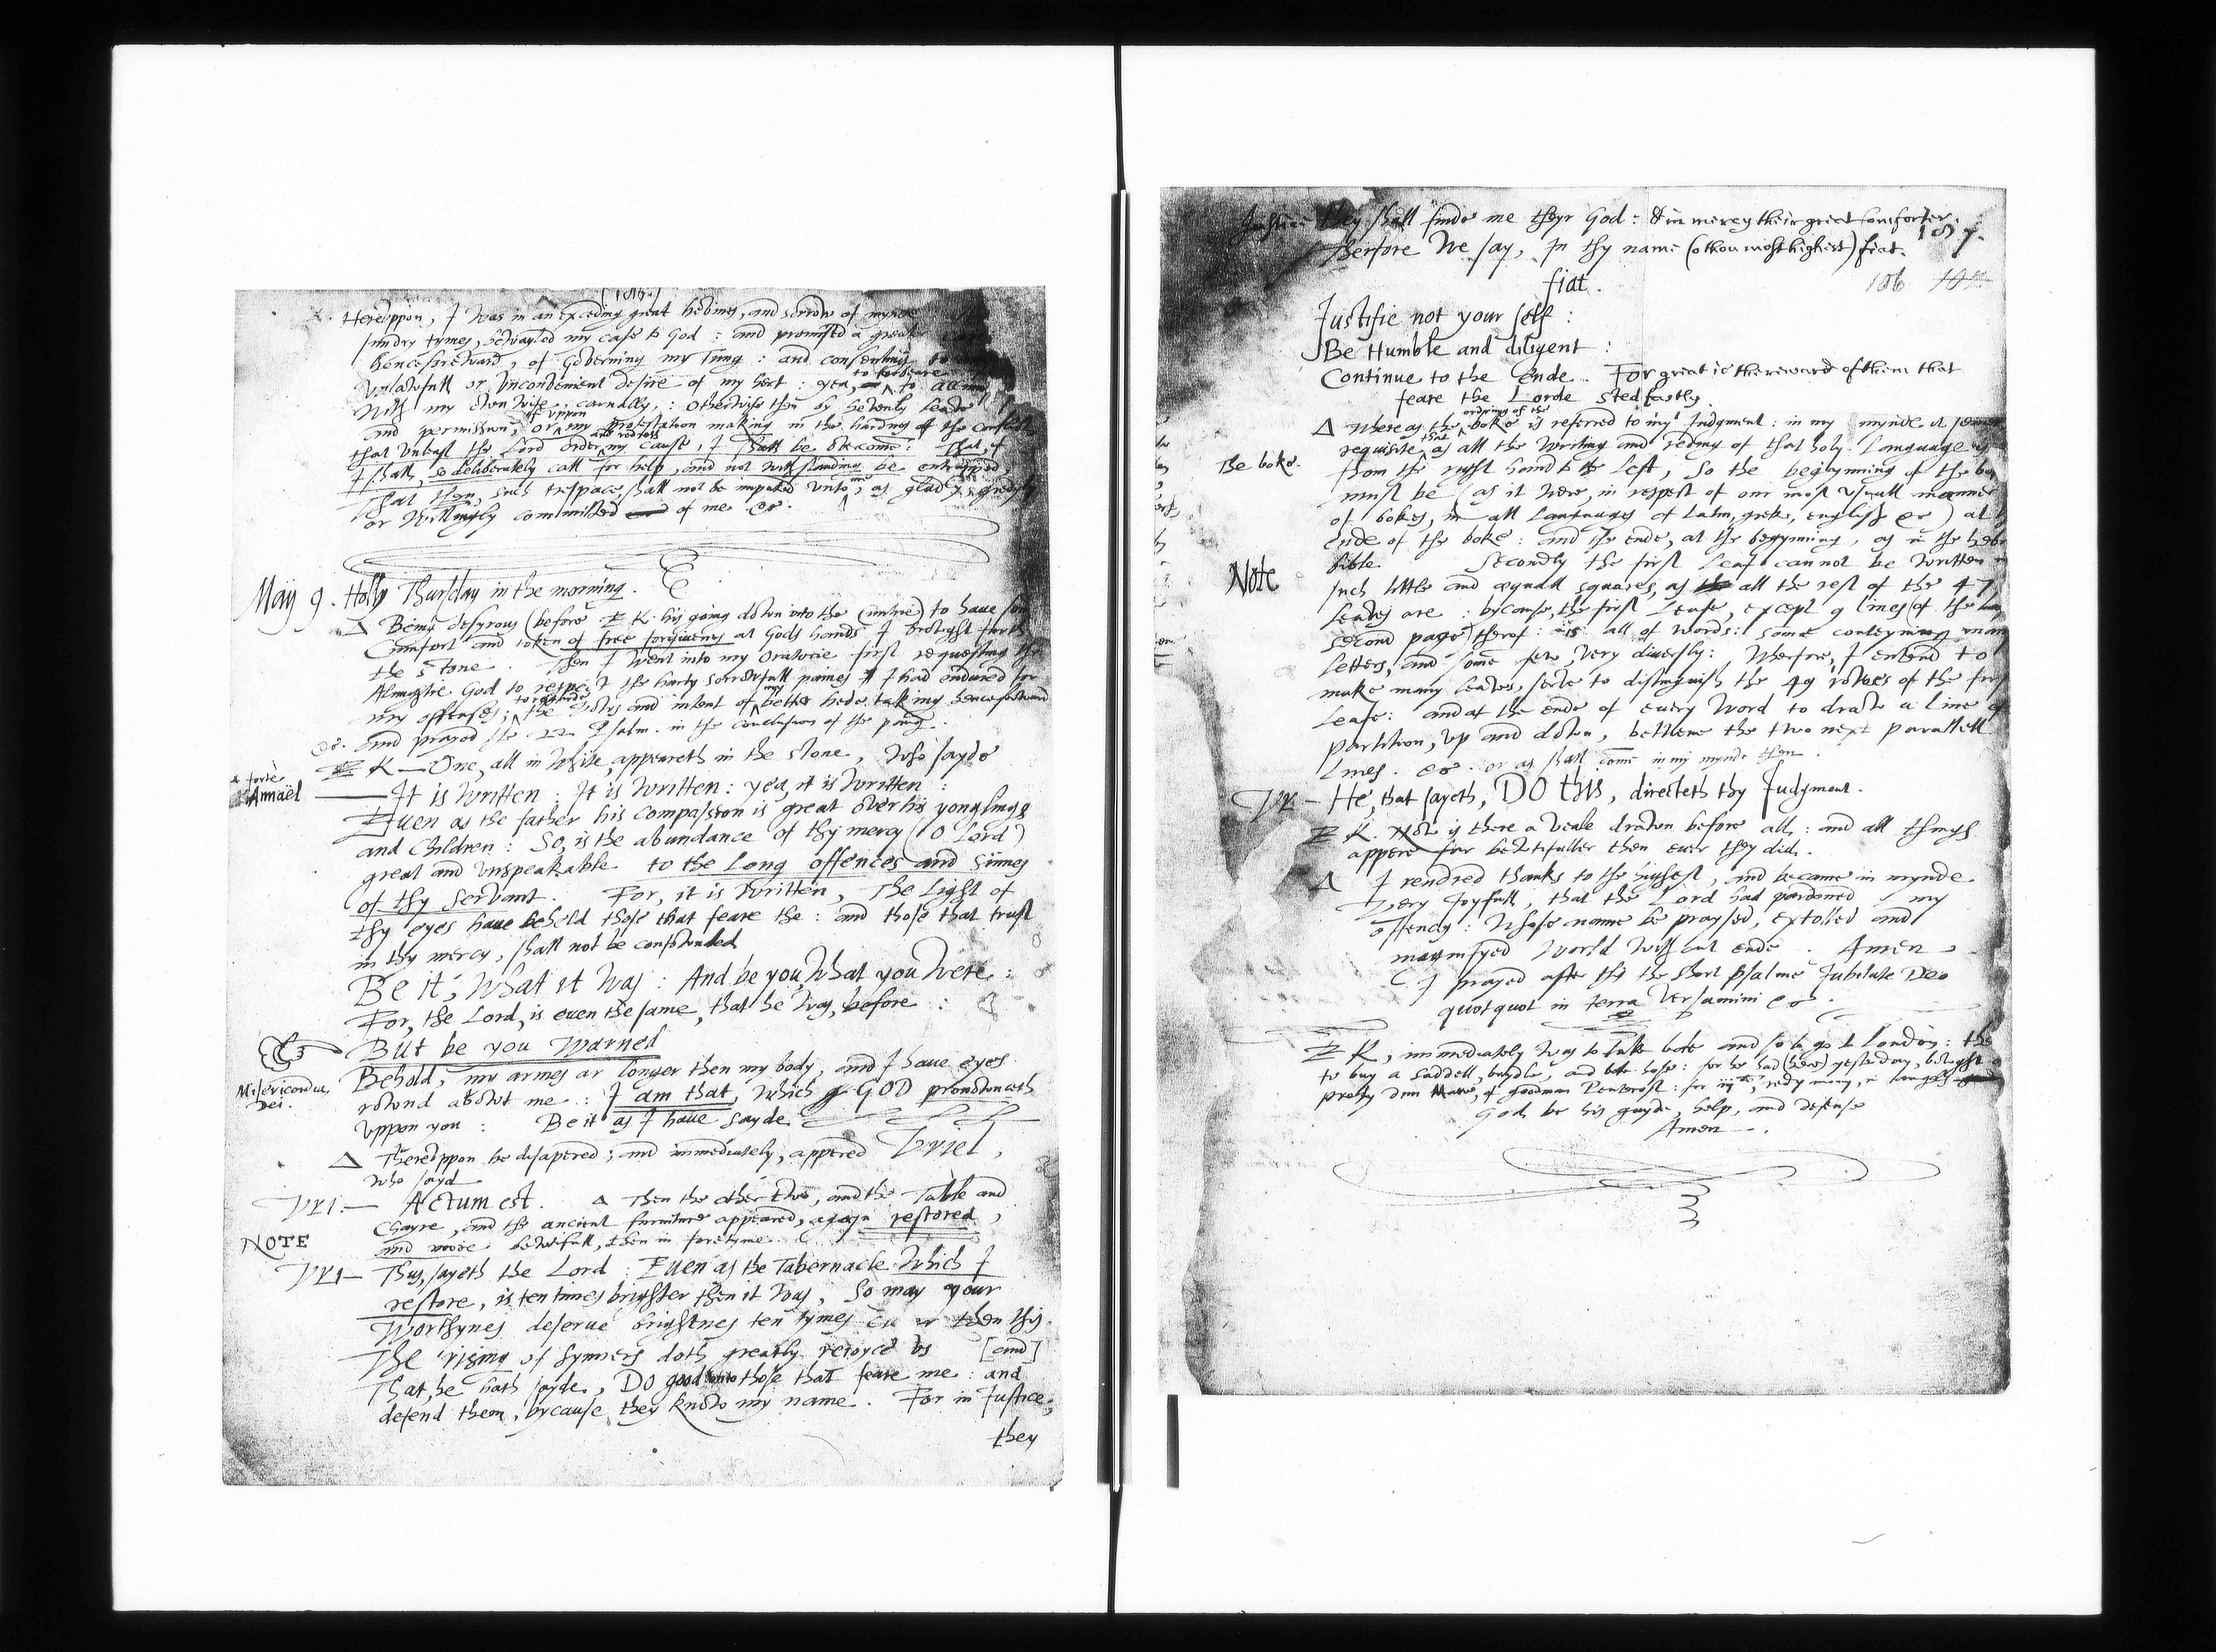 (186.)
Hereuppon, I was in an exceding great hevines, and sorrow of mynde
sundry tymes, bewayled my case to God : and promised a great
henceforeward, of Governing my Tung : and consenting to
unlawfull or unconvenient desire of my hert : yea, to forbeare to accum
with my owne wife, carnally, : otherwise then by hevenly leave
and permission, or if uppon my protestation making in the hardnes of the conflict
that unleast the Lord order and redress my cause, I shall be overcome: That, if
I shall, so deliberately call for help, and not withstanding be entrapped,
That then, such trespace, shall not be imputed unto me, as glad, & gredyly
or willingly committed of me &c.
May 9. Holly Thursday in the morning.
Δ Being desyrous (before EK his going down into the cuntrie) to have som
Comfort and token of free forgiveness at Gods hands I browght furth
the stone. Then I went into my Oratorie first requesting the
Almightie God to respect the harty sorrowfull paines I had endured for
my offenses; to regarde the vows and intent of my better hede taking henceforward
&c. and prayed the 22 Psalm. in the conclusion of the pang.
EK — One, all in white, appeareth in the stone, who sayde
+ forte
Annaël
— It is written : It is written : yea, it is written :
Euen as the father his compassion is great over his yonglings
and Children : So, is the abundance of thy mercy (O Lord)
great and unspeakable to the Long offences and sinnes
of thy servant. For, it is written, The light of
thy eyes have beheld those that feare the : and those that trust
in thy mercy, shall not be confownded
Be it, what it was : And be you, what you were :
For, the Lord, is euen the same, that he was, before :
But be you Warned
Misericordia
Dei.
Behold, my armes ar longer then my body, and I haue eyes
rownd abowt me : I am that, which GOD pronownceth
uppon you : Be it as I haue sayde
Δ Thereuppon he disapered; and immediately, appered Vriel,
who sayd
VRI. — Actum est. Δ Then the other two, and the Table and
Chayre, and the ancient furniture appeared, agayn restored,
NOTE
and more bewtifull, then in foretyme.
VRI — Thus, sayeth the Lord : Euen as the Tabernacle which I
restore, is ten times brighter then it was, So may your
Worthynes deserue brightnes ten tymes then this.
The rising of synners doth greatly reioyce us [and]
That, he hath sayde, DO good unto those that feare me : and
defend them, bycause they know my name. For in Justice,
they
Justice they shall finde me theyr God : & in mercy their great Comforter.
187.
Therfore We say, In thy name (o thou most highest) fiat.
fiat.
186
Justifie not your self :
Be Humble and diligent :
Continue to the Ende. For great is the reward of them that
feare the Lorde stedfastly.
Δ Where as the ordring of the boke is referred to my Judgment : in my mynde it semeth
requisite that as all the Writing and reding of that holy Language is
The boke.
from the right hand to the left, so the begynning of the boke
must be (as it were, in respect of our most usuall manner
of bokes, in all Languages of Latin, greke, english &c) at
ende of the boke : and the ende, at the begynning, as in the hebr
Note
bible. Secondly the first Leafe cannot be written
such little and aequall squares, as all the rest of the 47
Leaves are : bycause, the first Leafe, except 9 lines (of the
second page) therof : is all of words : some conteyning many
letters, and some few, very diversly : Wherfore, I entend to
make many leaves, serve to distinguish the 49 rowes of the first
Leafe : and at the ende of every Word to draw a line of
partition, up and down, betwene the two next parallell
Lines. &c. or as shall come in my mynde then.
VR — He, that sayeth, DO this, directeth thy Judgment.
EK. Now is there a veale drawn before all : and all things
appere far bewtifuller then ever they did.
Δ I rendred thanks to the highest, and became in mynde
very Joyfull, that the Lord had pardoned my
offences : Whose name be praysed, extolled and
magnifyed World without ende. Amen.
I prayed after this the short psalme Jubilate Deo
quotquot in terra versamini &c.
EK, immediately was to take bote and so to go to London : the
to buy a saddell, brydle, and bote hose : for he had (here) yesterday, bowght a
pretty dun Mare, of goodman Pentecost : for iij redy mony, in
God be his gwyde, help, and defense
Amen.